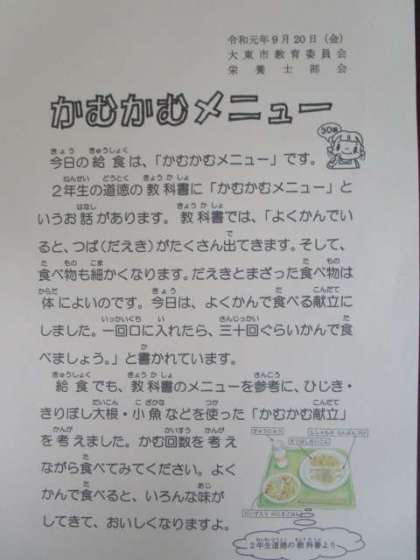 令和元年9月20日(金)
大東市教育委員会
栄養士部会
かむかむメニュー
30回
今日の給食は、「かむかむメニュー」です。
2年生の道徳の教科書に「かむかむメニュー」と
いうお話があります。教科書では、「よくかんでい
ると、つば(だえき)がたくさん出てきます。そして、
食べ物も細かくなります。だえきとまざった食べ物は
体によいのです。今日は、よくかんで食べる献立に
しました。一回口に入れたら、三十回ぐらいかんで食
べましょう。」と書かれています。
給食でも、教科書のメニューを参考に、ひじき・
きりぼし大根・小魚などを使った「かむかむ献立」
を考えました。かむ回数を考え
ながら食べてみてください。よく
かんで食べると、いろんな味が
してきて、おいしくなりますよ。
ぎゅうにゅう
2年生道徳の教科書より